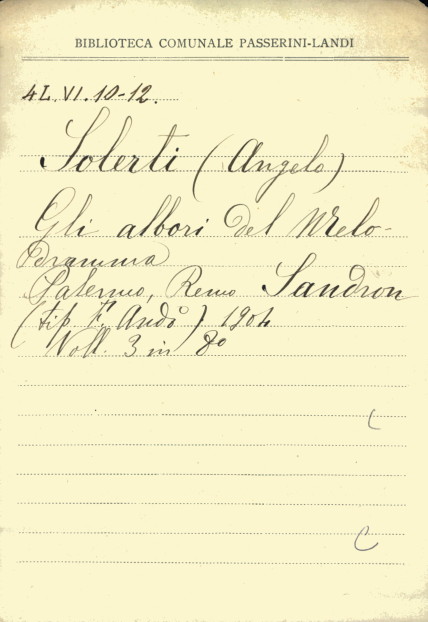 BIBLIOTECA COMUNALE PASSERINI-LANDI
4L.VI.10-12.
Solerti (Angelo)
Gli albori del Melo-
dramma
Palermo, Remo Sandron
(tip. F. Andò) 1904
Voll. 3 in 8º
C
C